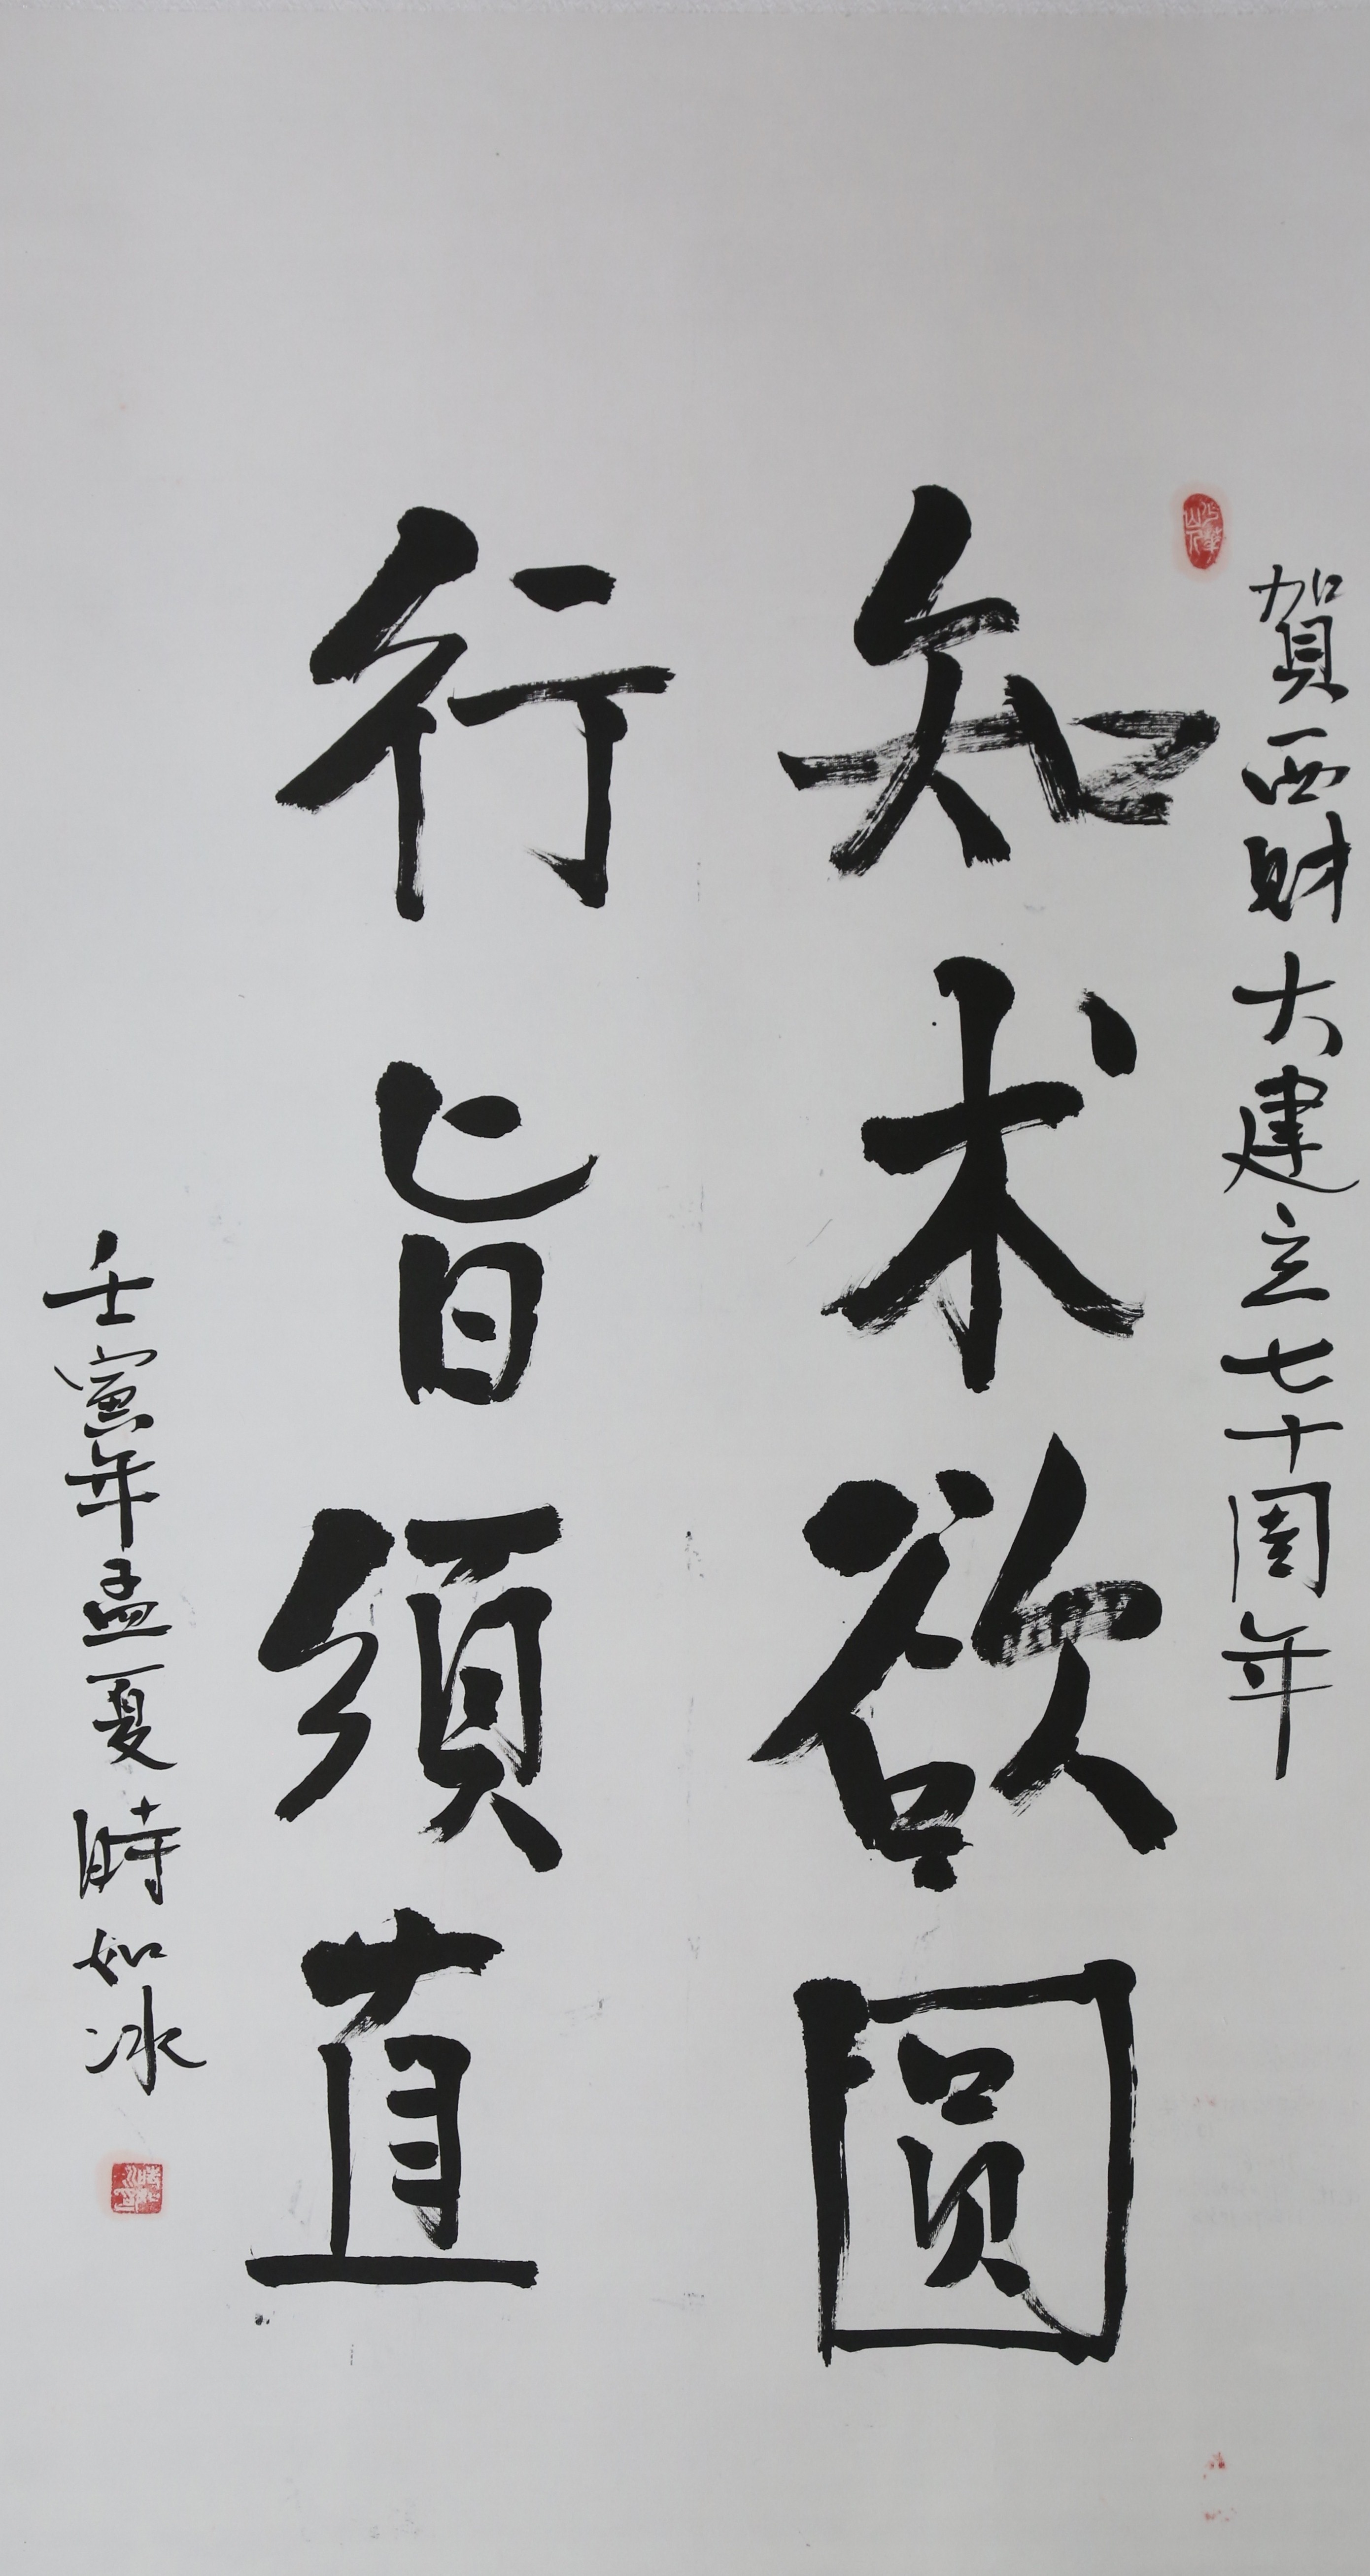 賀西财大建立七十周年
知术欲圆
行旨须直
壬寅年孟夏時如冰